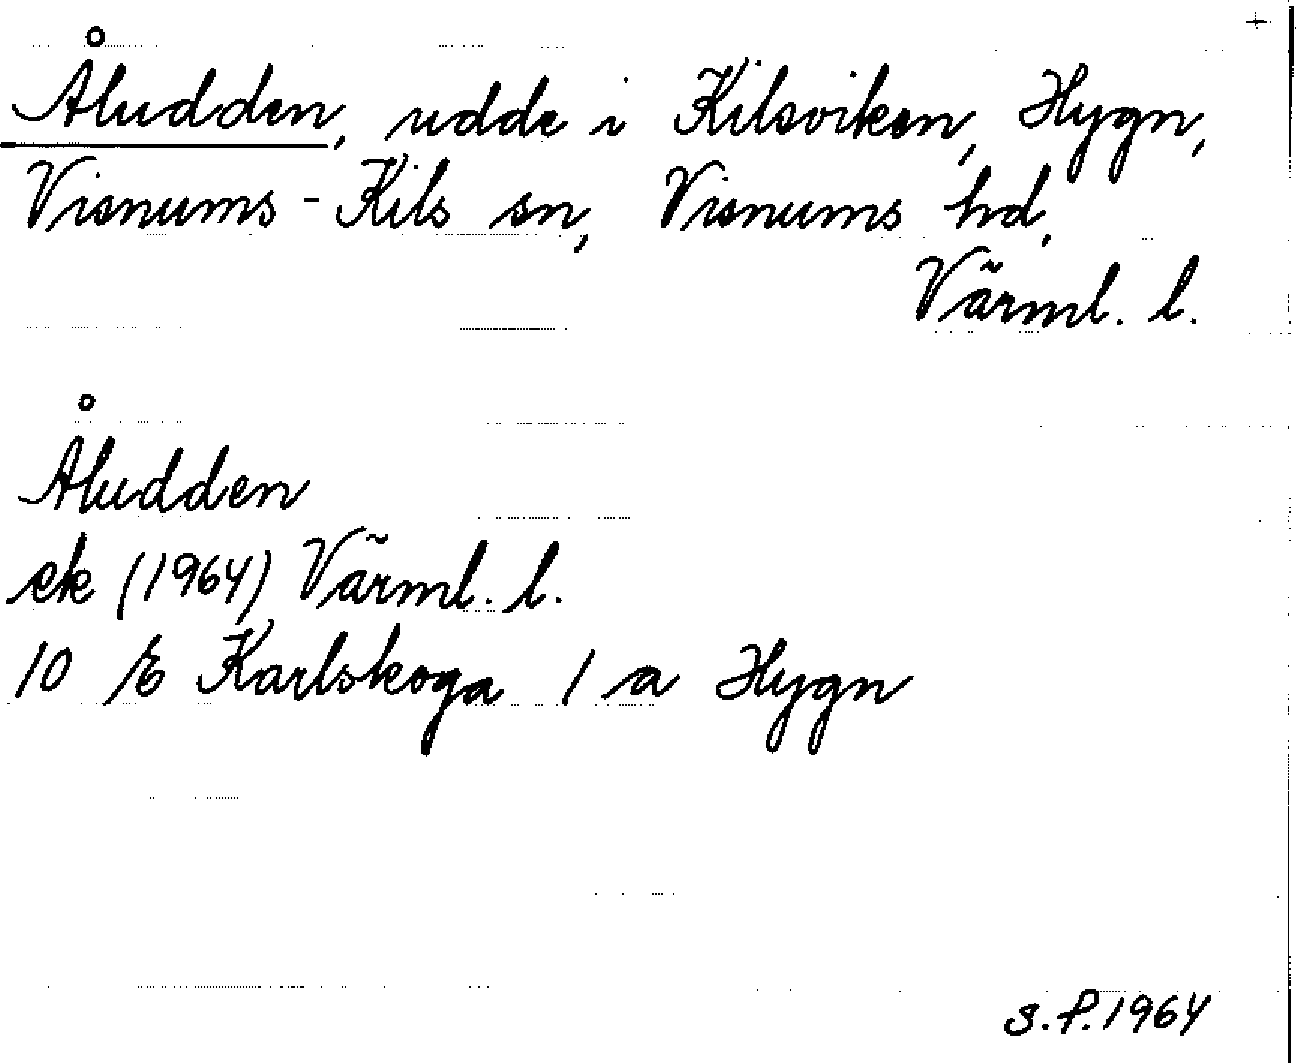 Åludden, udde i Kilsviken, Hygn,
Visnums-Kils sn, Visnums hd,
Värml. l.
Åludden
ek (1964) Värml. l.
10 E Karlskoga 1 a Hygn
S.F. 1964